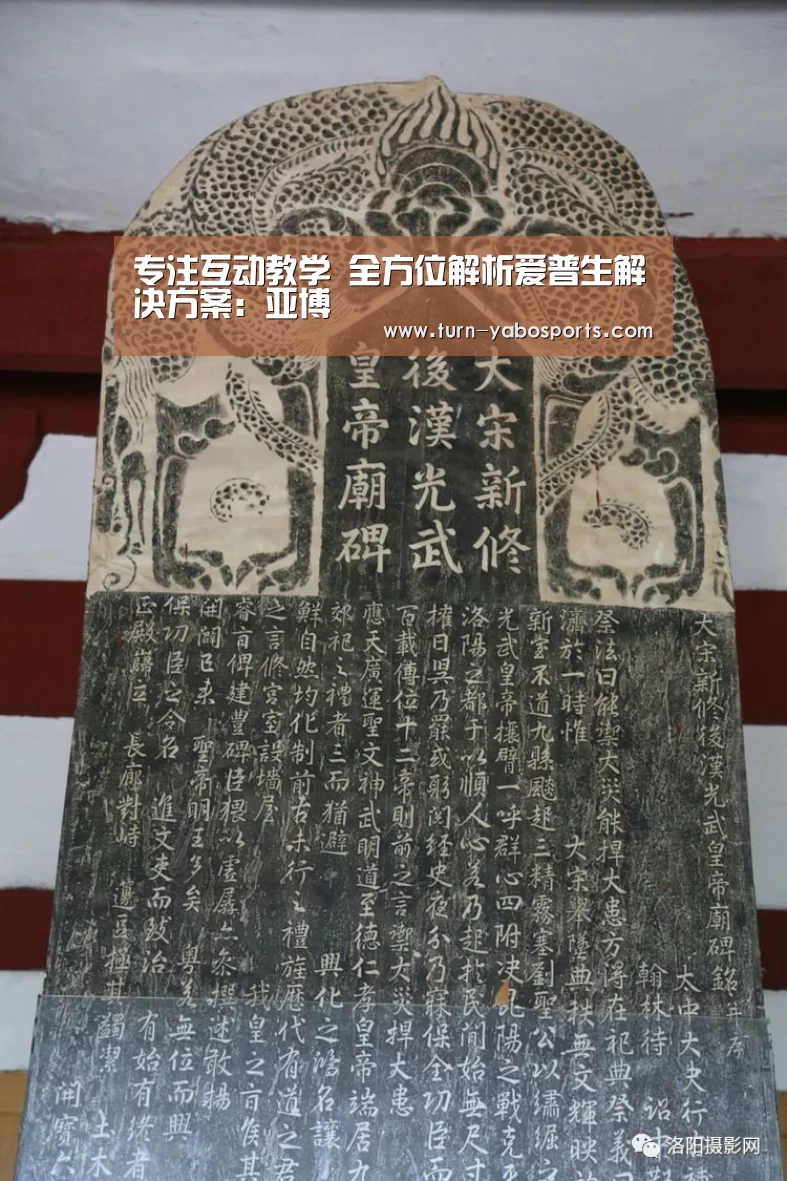 专注互动教学 全方位解析爱普生解
决方案：亚博
www.turn-yabosports.com
大宋新修
後漢光武
皇帝廟碑
大宋新修後漢光武皇帝廟碑銘并序
太中大夫行
翰林待 詔
祭法曰能禦大災能捍大患方得在祀典祭義
濟於一時惟 大宋舉墜典秩無文輝映
新室不道九縣飇起三精霧塞劉聖公以繡
光武皇帝攘臂一呼群心四附决昆陽之戰克
洛陽之都于以順人心 乃起於民間始無尺寸
權日昃乃罷或 閱經史夜分乃寐保全功臣而
百載傳位十二帝則前之言禦大災捍大患
應天廣運聖文神武明道至德仁孝皇帝端居九
郊祀之禮者三而猶避 興化之鴻名讓
鮮自然均化制前古未行之禮旌歷代有道之君
之言修宮室設墻屋 我皇之 其
睿旨俾建豐碑臣猥以虛孱 撰述敢揚
開闢已来 聖帝明王多矣 粤 無位而興
保功臣之令名 進文吏而致治 有始有终者
正殿巋 長廊對峙 籩豆極其蠲潔 土木
開寶六
洛阳摄影网